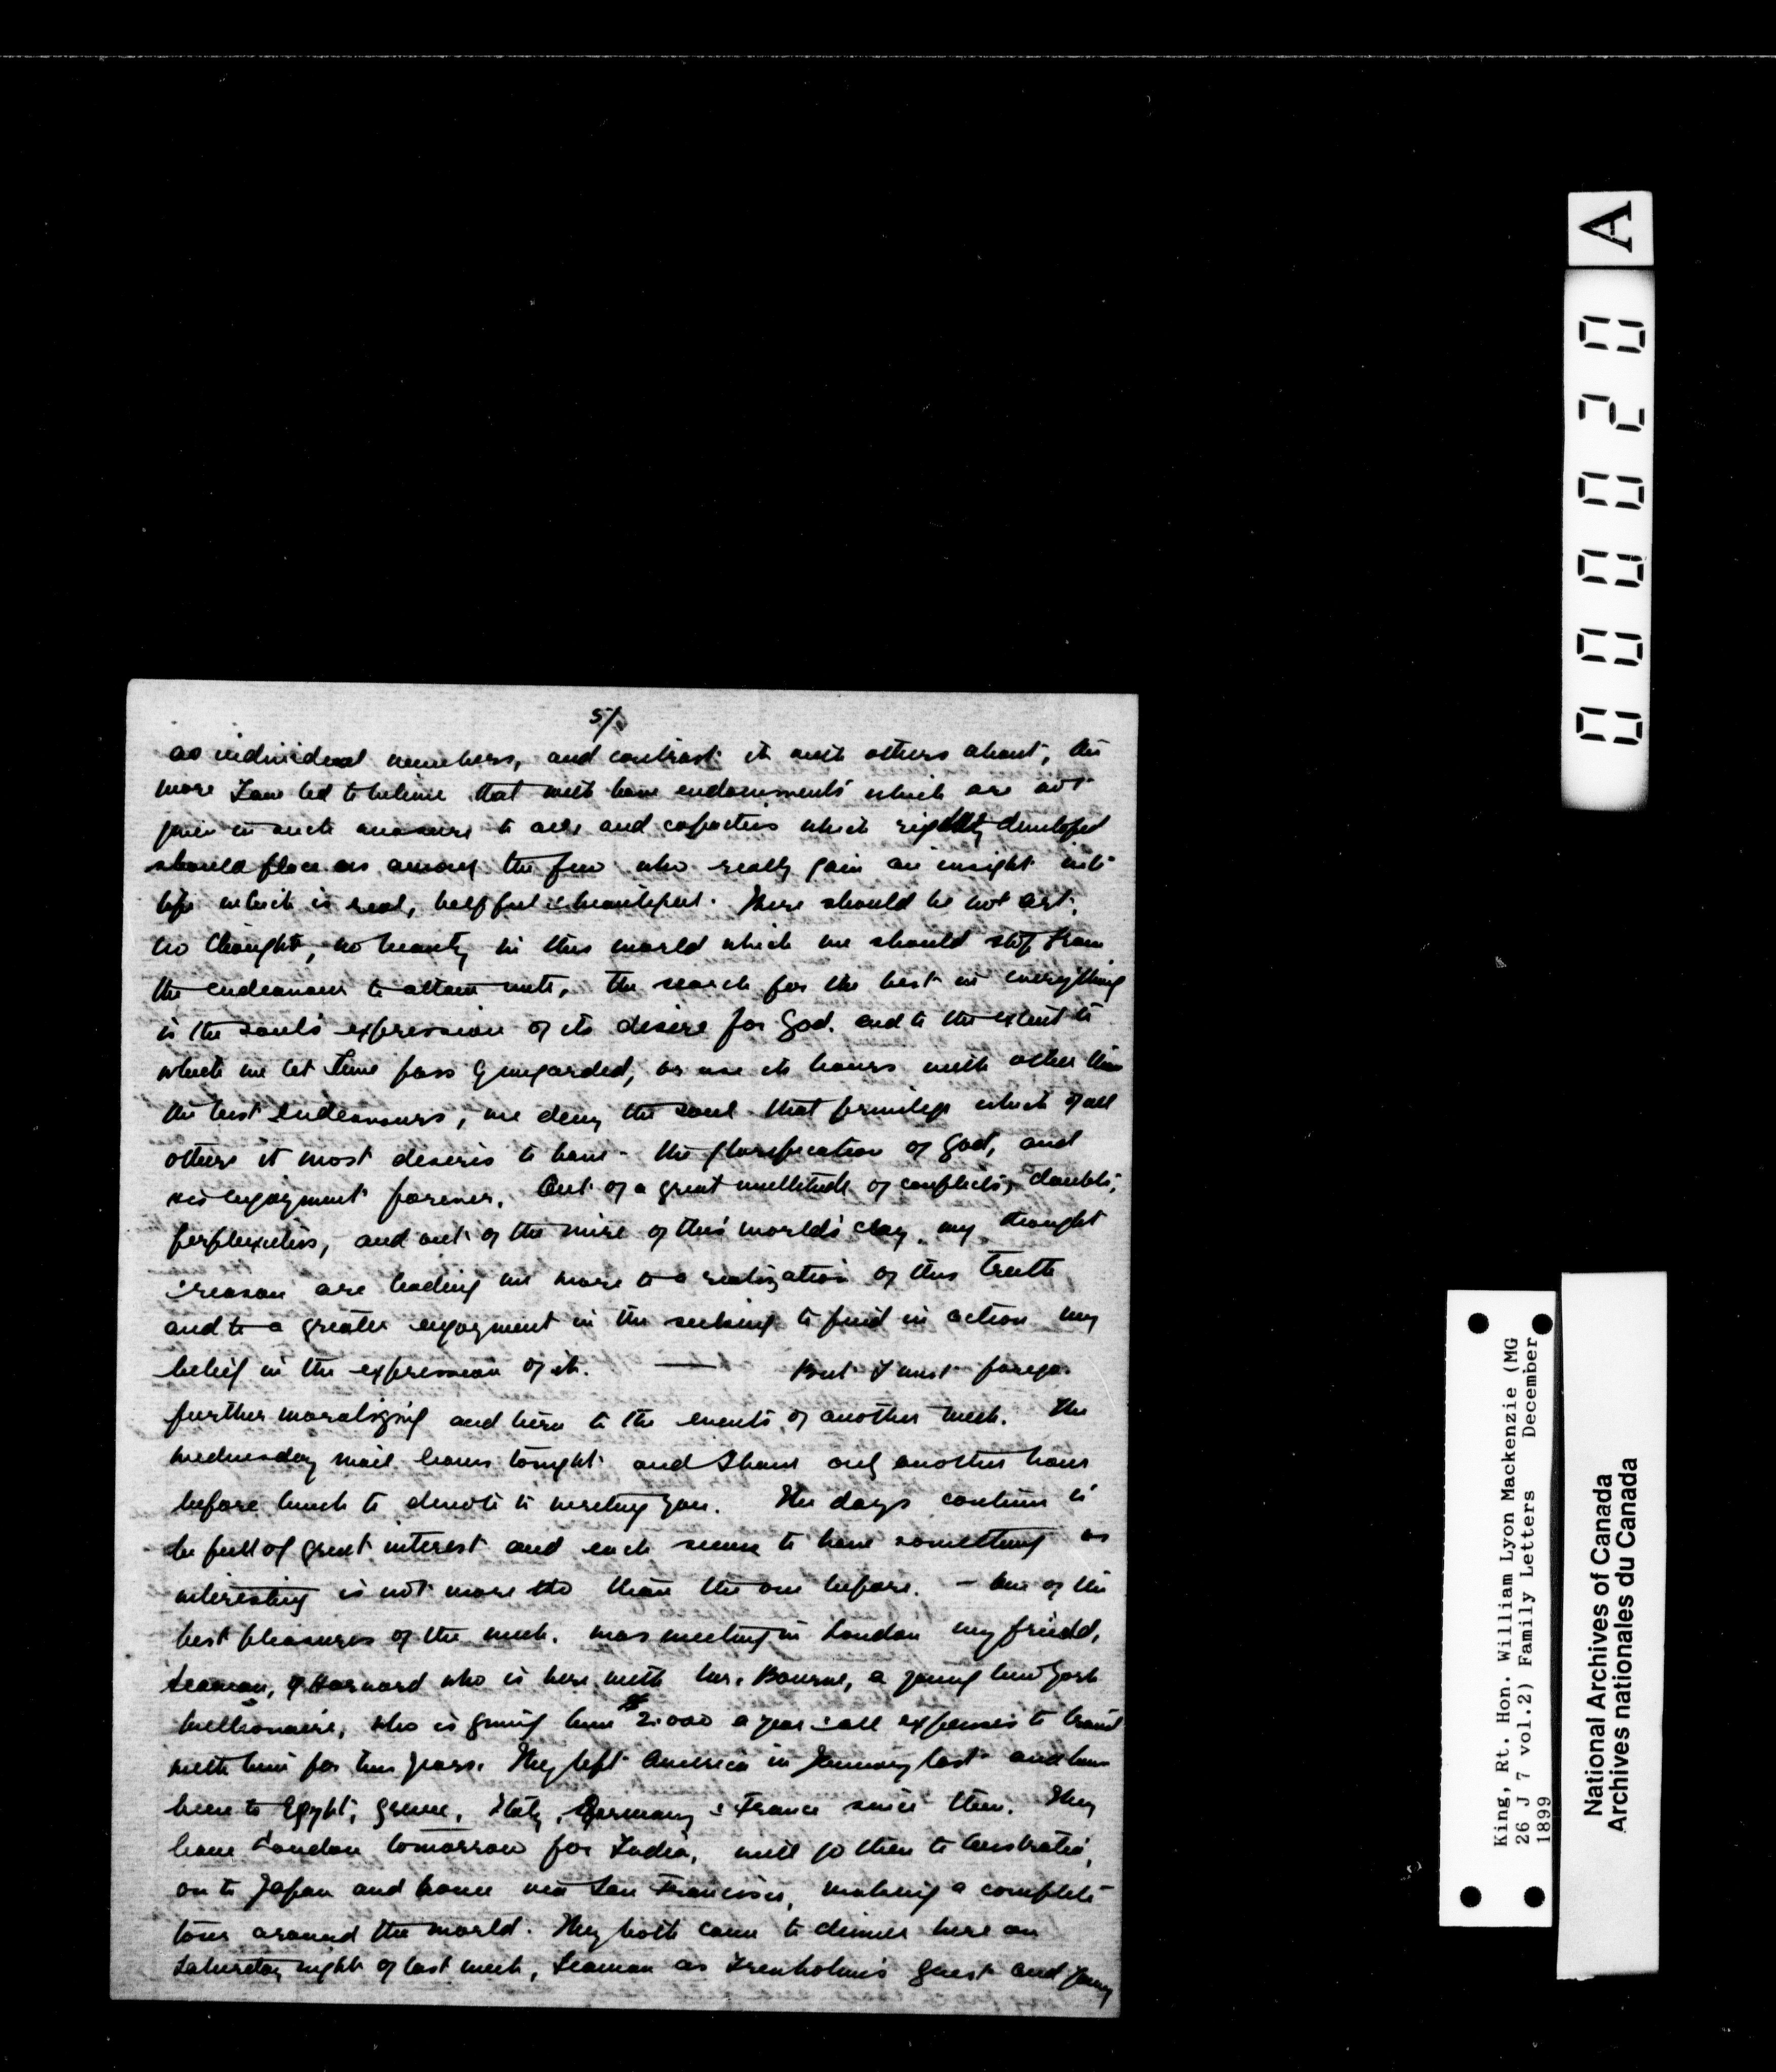 5/.
as individual members, and contrast it with others about, the
more I am led to believe that with have endowments which are not
given in such measure to all and capacities which rightly developed
should place us among the few who really gain an insight into
life which is real, helpful & beautiful. There should be not art,
no thought, no beauty in this world which we should stop from
the endeavour to attain unto, the search for the best in everything
is the soul's expression of its desire for God. and to the extent to
which we let time pass unguarded, or use its hours with other than
the best endeavours, we deny the soul that privilege which of all
others it most desires to have - the glorification of God, and
His enjoyment forever. Out of a great multitude of conflicts, doubts,
perplexities, and out of the mire of this world's clay, my thought
& reason are leading me more to a realization of this truth
and to a greater enjoyment in the seeking to find in action my
belief in the expression of it. — But I must forego
further moralizing and turn to the events of another week. The
Wednesday mail leaves tonight and I have only another hour
before lunch to devote to writing you. The days continue to
be full of great interest and each seems to have something as
interesting is not more so than the one before. - One of the
best pleasures of the week, was meeting in London my friend,
Seaman, of Harvard who is here with Mr. Bourne, a young New York
millionaire, who is giving him $2.000 a year & all expenses to travel
with him for two years. They left America in January last and have
been to Egypt, Greece, Italy, Germany & France since then. They
leave London tomorrow for India, will go then to Australia,
on to Japan and home via San Francisco, making a complete
tour around the world. They both came to dinner here on
Saturday night of last week, Seaman as Trenholm's guest and young
A
000020
King, Rt. Hon. William Lyon Mackenzie (MG
26 J 7 vol.2) Family Letters December
1899
National Archives of Canada
Archives nationales du Canada